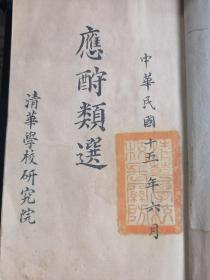 中華民國十五年六月
應酧類選
清華學校研究院